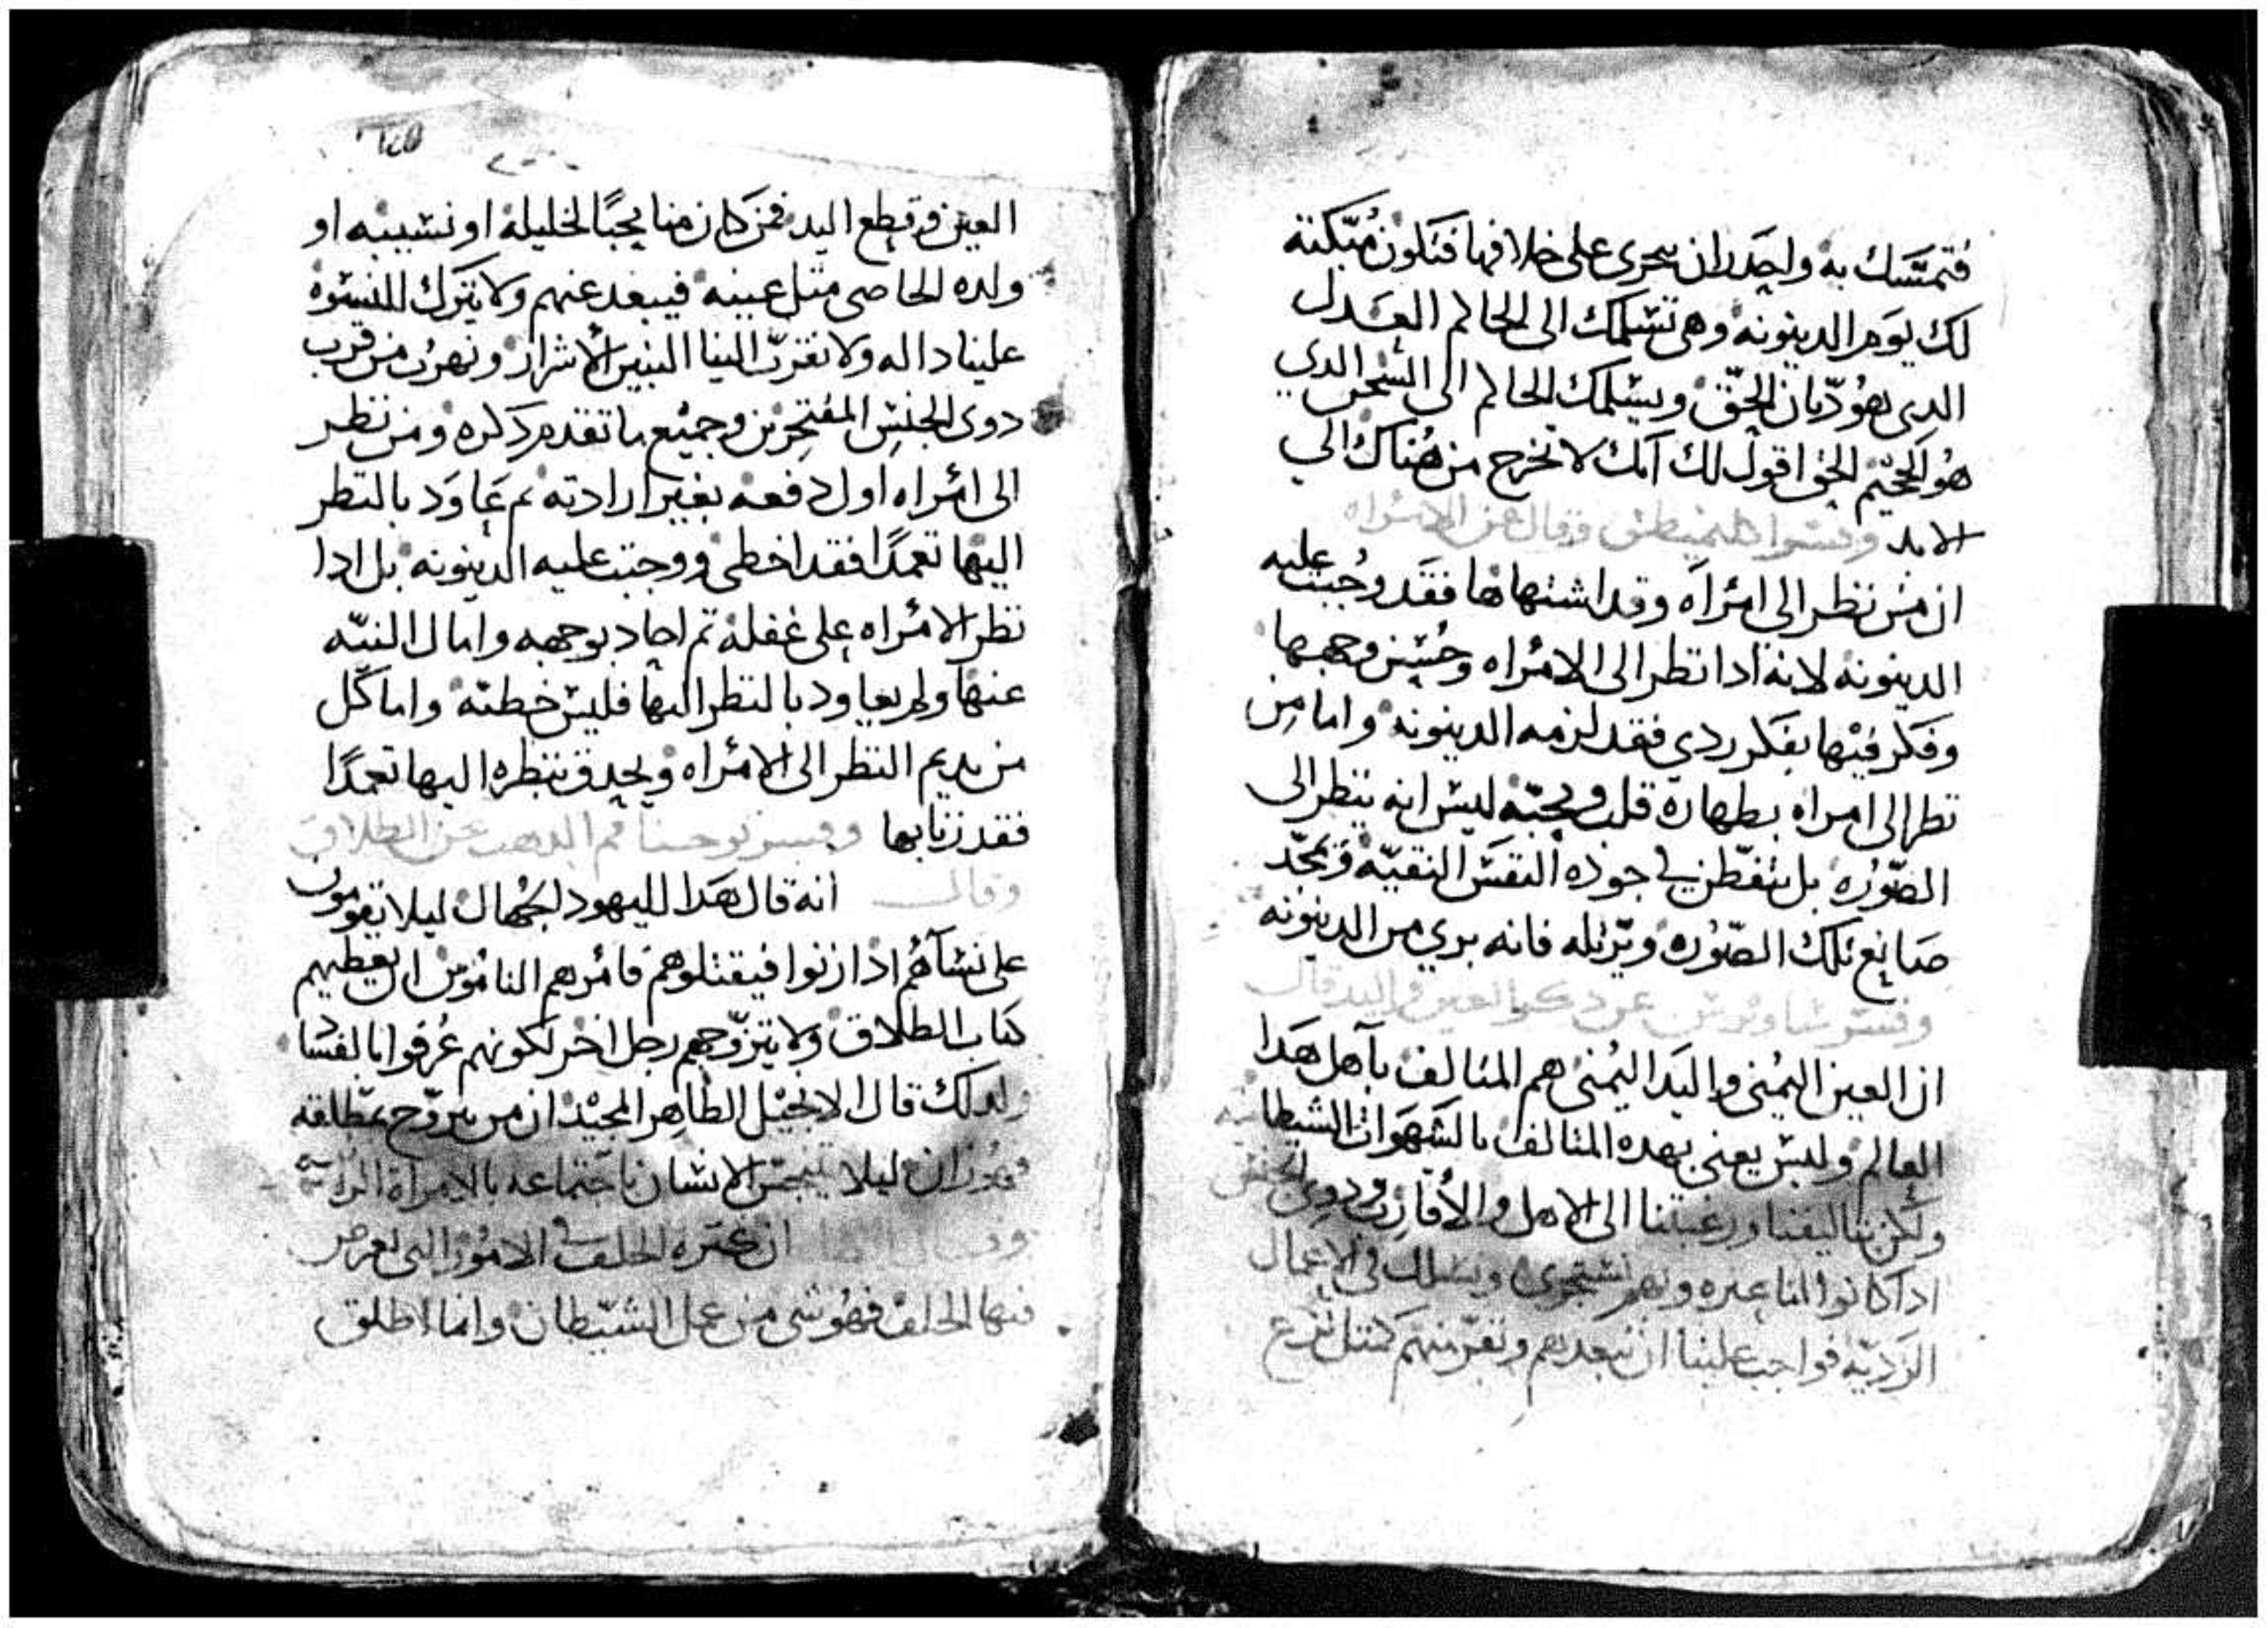 فتمسك به واحدران تجرى على خلافها فتكون مبكته
لك يوم الدينونه وهى تسلمك الى الحاكم العدل
الدى هو ديان الحق ويسلمك الحاكم الى السجن الدي
هو الجحيم الحق اقول لك انك لا تخرج من هناك الي
الابد وفسر اكليمنطس وقال عن الامراه
ان من نظر الى امراه وقد اشتهاها فقد وجبت عليه
الدينونه لانه ادا نظر الى الامراه وحسن وجهها
وفكر فيها بفكر ردي فقد لزمه الدينونه واما من
نظر الى امراه بطهارة قلب ومحبه ليس انه ينظر الى
الصوره بل يتفطن في جوده النفس النقيه ويمجد
صانع تلك الصوره ويرتله فانه بري من الدينونه
وفسر ساويرس عن دكر العين واليد قال
ان العين اليمنى واليد اليمنى هم المتالف باهل هدا
العالم وليس يعنى بهده المتالف بالشهوات الشيطانيه
ولكن بتاليفنا ورغبتنا الى الاهل والأقارب ودوي الجنس
ادا كانوا لنا عتره وبهم نستجرى ونسلك في الاعمال
الرديه فواجب علينا ان نبعدهم ونفر منهم كمثل نزع
العين وقطع اليد فمن كان منا محبا لخليله او نسيبه او
ولده الخاص مثل عينه فيبعد عنهم ولا يترك للنسوه
علينا داله ولا نقرب الينا البنين الأشرار ونهرب من قرب
دوى الجنس المفتخرين وجميع ما تقدم دكره ومن نظر
الى امراه اول دفعه بغير ارادته تم عاود بالنظر
اليها تعمدا فقد اخطى ووجبت عليه الدينونه بل ادا
نظر الامراه على غفله تم احاد بوجهه وامال النيه
عنها ولم يعاود بالنظر اليها فليس خطيه واما كل
من يديم النظر الى الامراه ويحدق بنظره اليها تعمدا
فقد زنا بها وفسر يوحنا فم الدهب عن الطلاق
وقال انه قال هدا لليهود الجهال ليلا يقومون
على نساهم ادا زنوا فيقتلوهم فامرهم الناموس ان يعطيهم
كتاب الطلاق ولا يتزوجهم رجل اخر لكونهم عرفوا بالفساد
ولدلك قال الانجيل الطاهر المجيد ان من يتزوج بمطلقه
ليلا ينجس الانسان باجتماعه بالامراه الزانيه
وقال ان كتره الحلف في الامور التى نعرض
فيها الحلف فهو شى من عمل الشيطان وانما اطلق